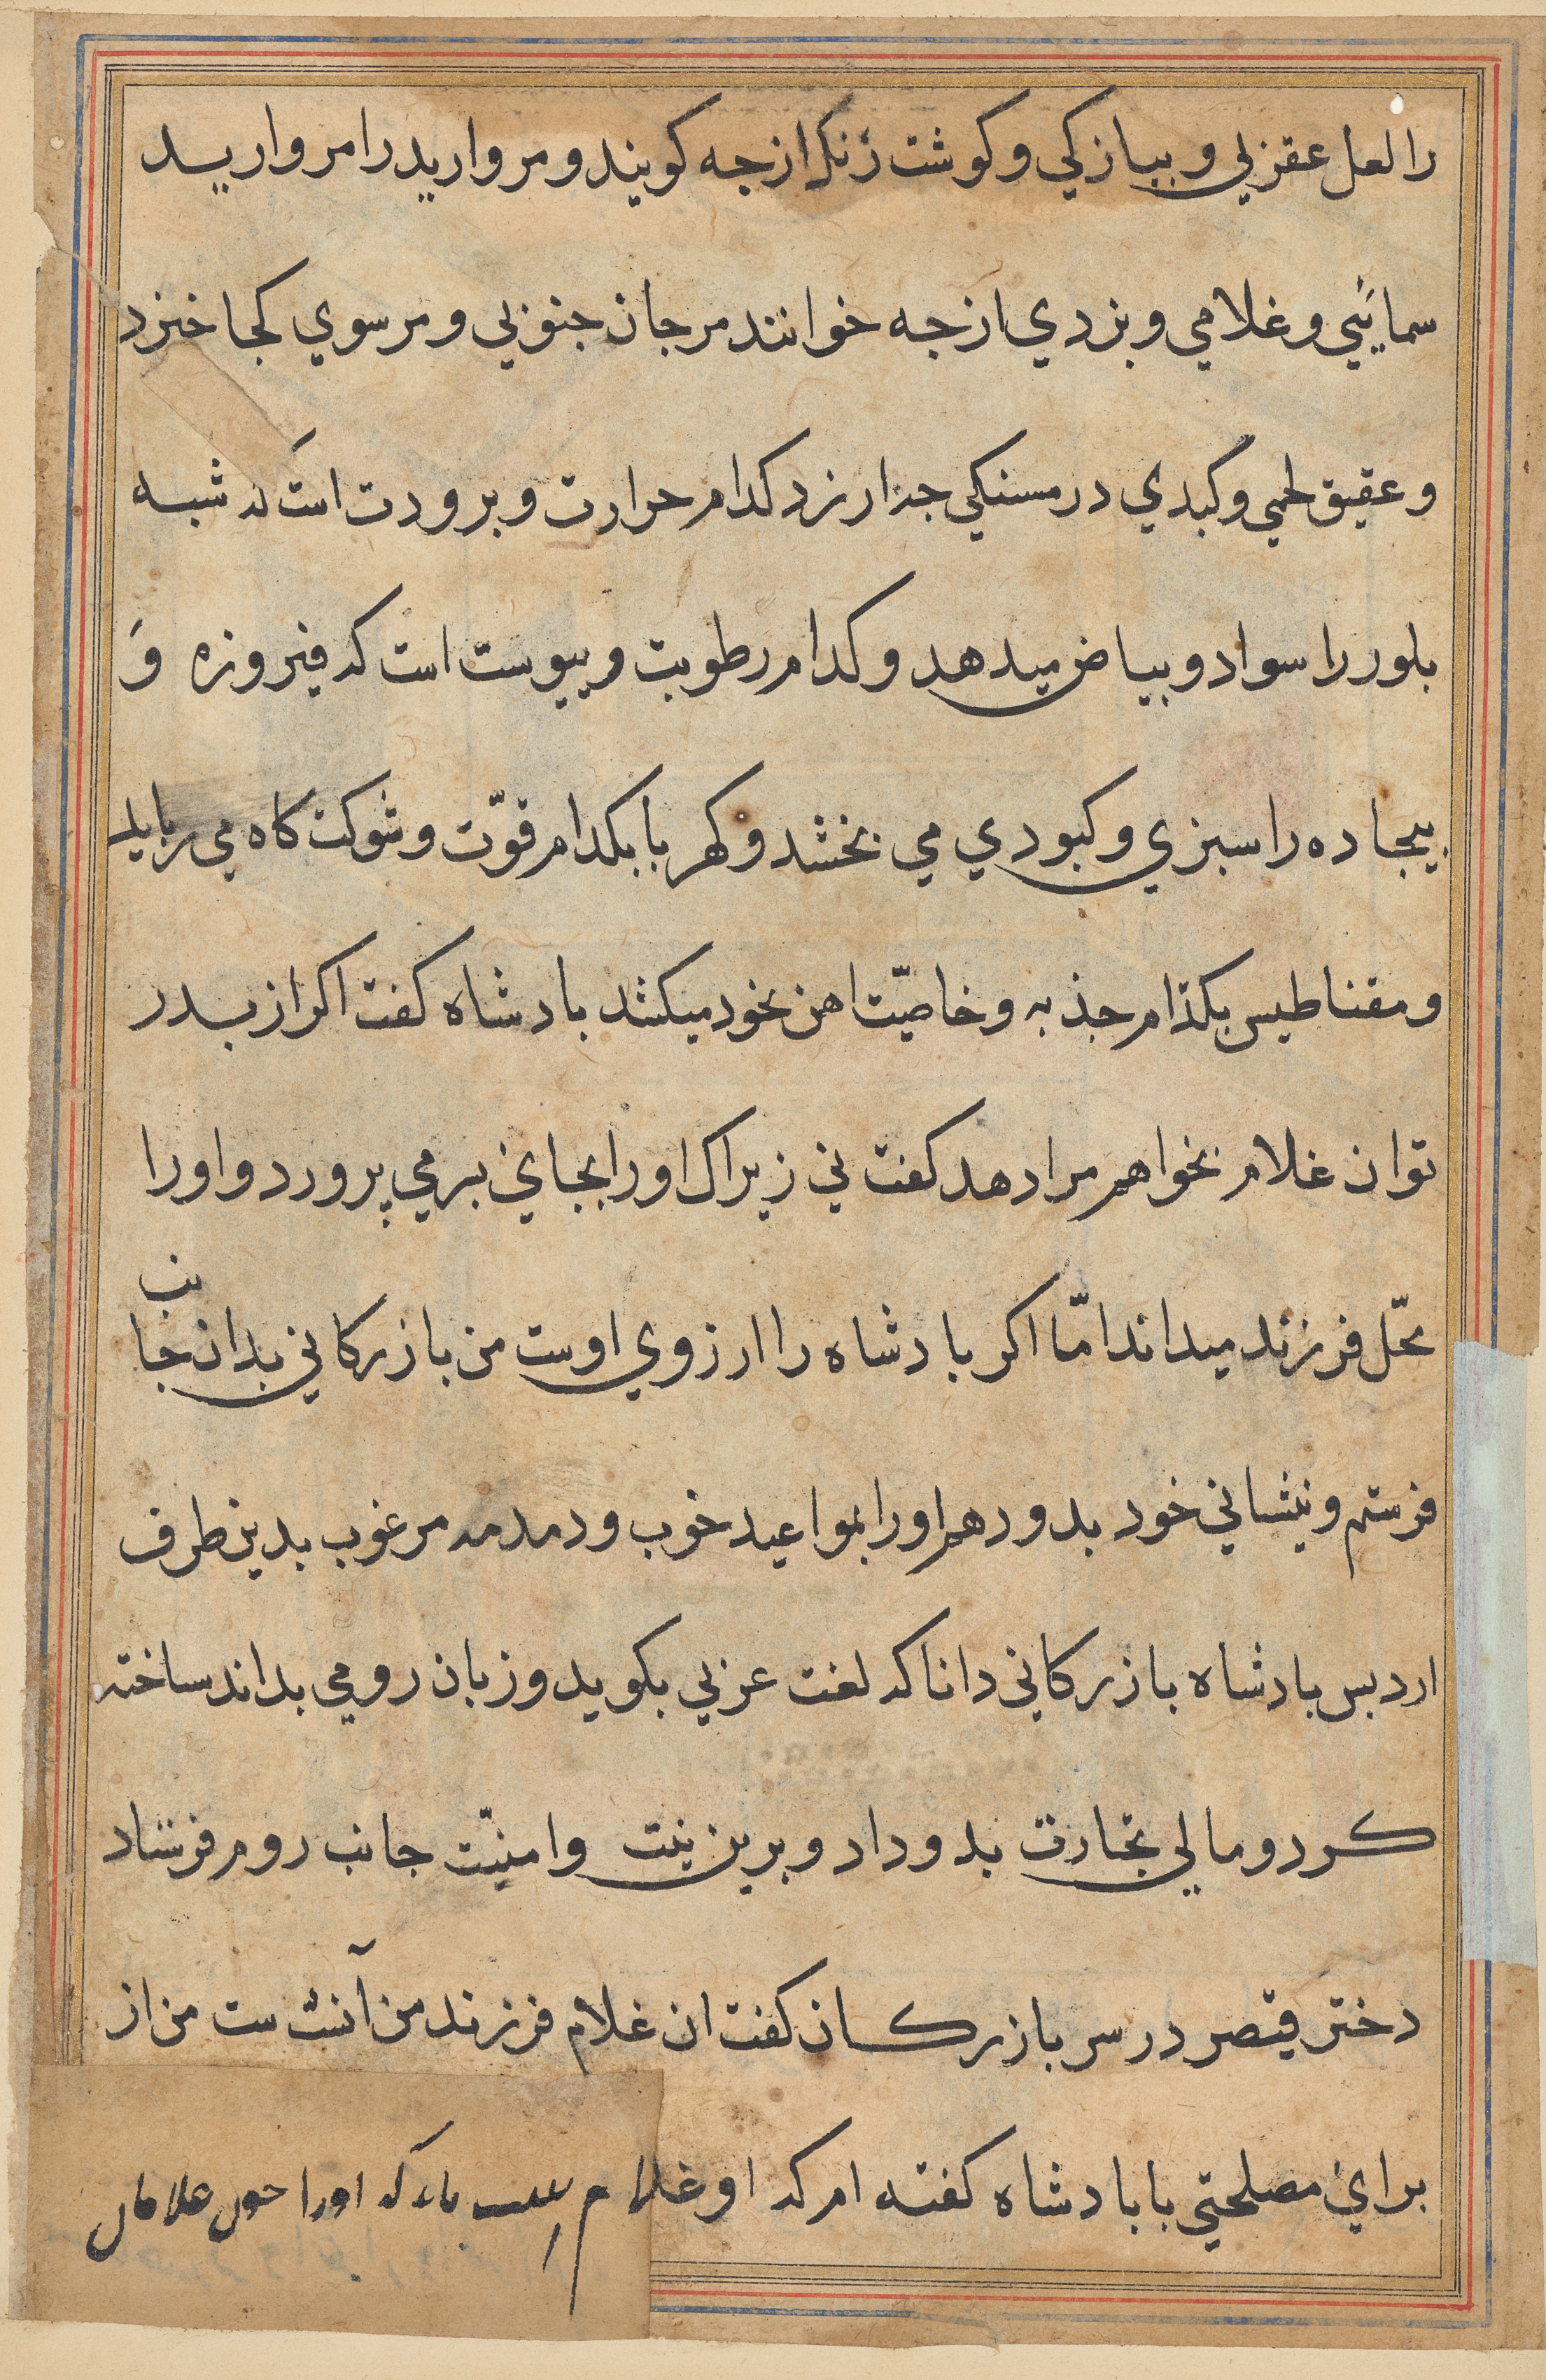 را لعل عقربي و بيازكي و كوشت رنك ازجه كويند و مرواريد را مرواريد
سمائي و غلامي و بزدي ازجه خوانند مرجان جنوبي و مرسوي كجا خيزد
و عقيق لحمي و كبدي در مسنكي جذارزد كدام حرارت و برودت است كه شبه
بلور را سواد و بياض ميدهد و كدام رطوبت و يبوست است كه فيروزه وَ
بيجاده را سبزي و كبودي مي بخشد و كهربا بكدام قوّت و شوكت كاه مي ربايد
و مقناطيس بكدام جذبه و خاصيّت اهن بخود ميكشد بادشاه كفت اكر از بدر
توان غلام بخواهم مرا دهد كفت ني زيراك او را بجاي بسر مي پرورد و او را
محّل فرزند ميداند امّا اكر بادشاه را ارزوي اوست من بازركاني بدان جانب
فرستم و نيشاني خود بدو دهم او را بمواعيد خوب و دمدمه مرغوب بدين طرف
ارد بس بادشاه بازركاني دانا كه لغت عربي بكويد و زبان رومي بداند ساخته
كرد و مالي تجارت بدو داد و برين نيت وامنيّت جانب روم فرستاد
دختر قيصر در سر بازركان كفت ان غلام فرزند من آنست ست من از
براي مصلحتي با بادشاه كفته ام كه او غلام است بايد كه او را چون غلامان